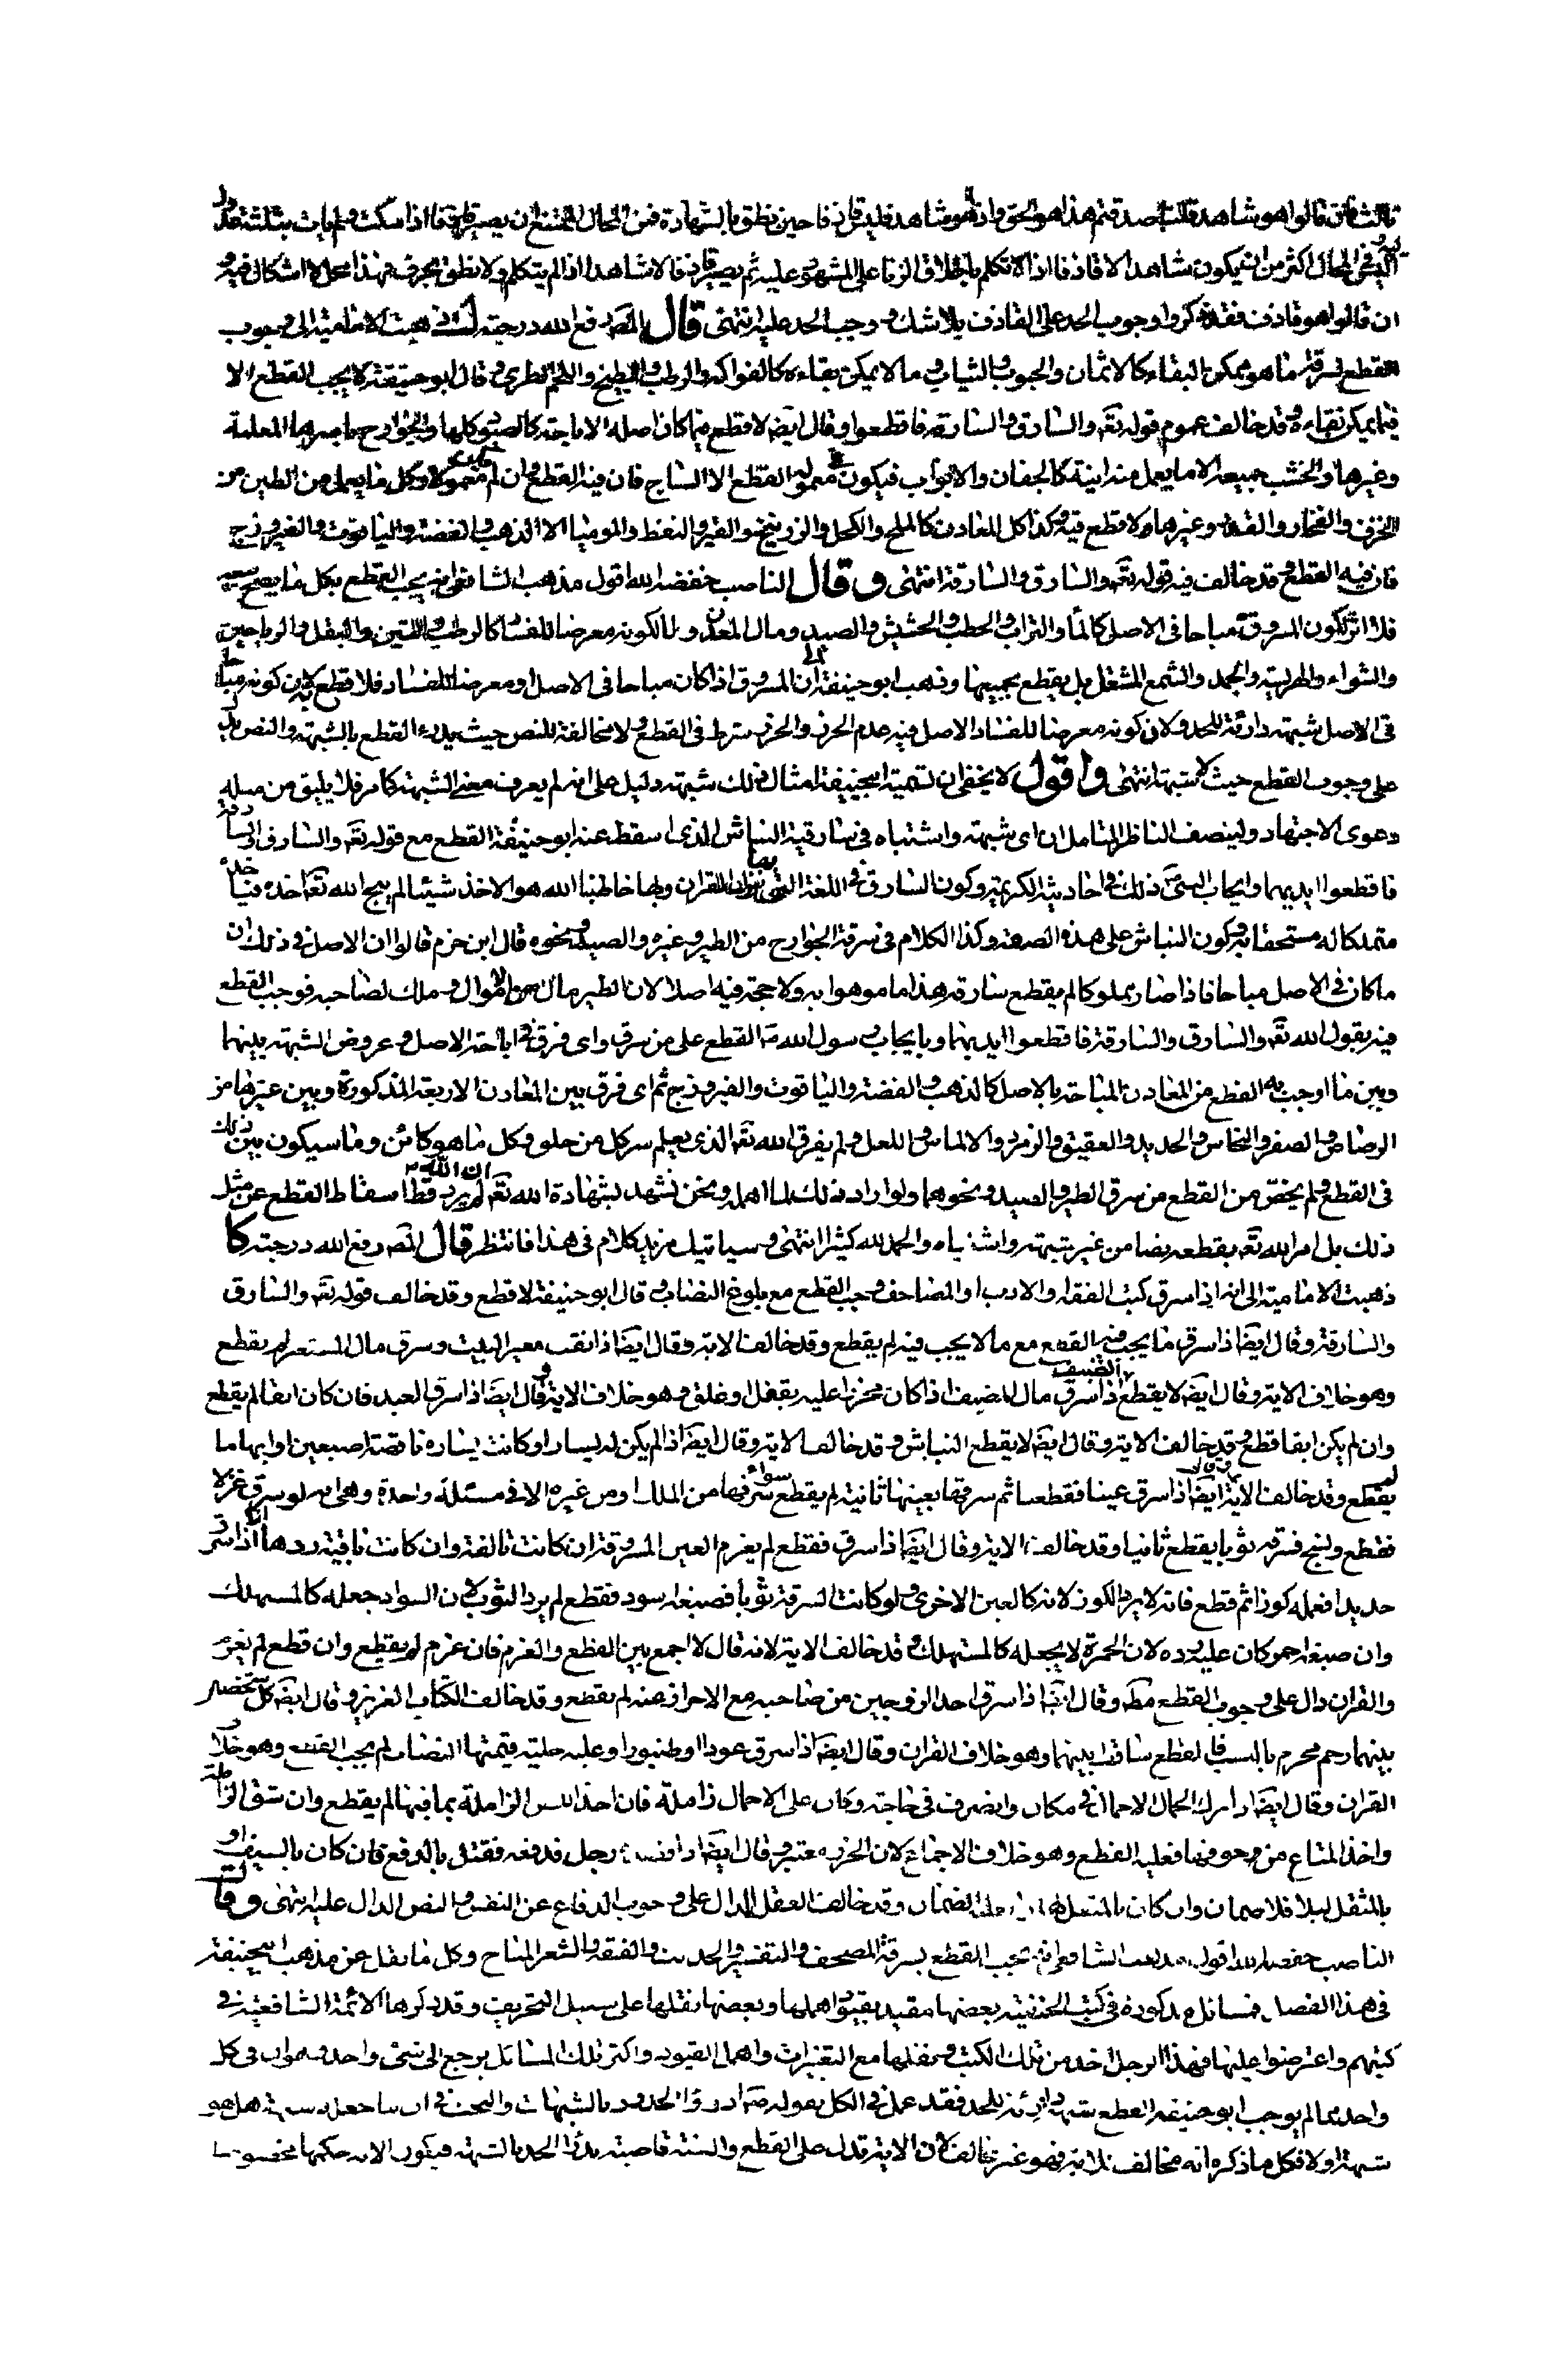 ثالث فان قالوا هو شاهد قلنا صدقتم هذا هو الحق واذ هو شاهد فليس قاذفا حين نطق بالشهادة فمن المحال الممتنع ان يصير قاذفا اذا سكت ولم يات بثلثة عدول
اليس فى المحال اكثر من ان يكون شاهدا لا قاذفا اذا تكلم باطلاق الزنا على المشهود عليه ثم يصير قاذفا لا شاهدا اذا لم يتكلم ولا نطق بحرف فهذا محال لا اشكال فيه و
ان قالوا هو قاذف فقد ذكروا وجوب الحد على القاذف بلا شك وجب الحد عليه انتهى قال المص رفع الله درجته ذهبت الامامية الى وجوب
القطع لسرقة ما هو ممكن البقاء كالاثمان والحبوب والثياب وما لا يمكن بقاءه كالفواكه والرطب والبطيخ واللحم الطرى وقال ابو حنيفة لا يجب القطع الا
فيما يمكن بقاءه وقد خالف عموم قوله تعه والسارق والسارقة فاقطعوا وقال ايضه لا قطع فيما كان اصله الاباحة كالصيود كلها والجوارح باسرها المعلمة
وغيرها والخشب جميعه الا ما يعمل منه انية كالجفان والابواب فيكون معموله القطع الا الساج فان فيه القطع وان لم معمولا وكل ما يعمل من الطين من
الخزف والفخار والقدر وغيرها لا قطع فيه وكذا كل المعادن كالملح والكحل والزرنيخ والقير والنفط والموميا الا الذهب والفضة والياقوت والفيروزج
فان فيه القطع وقد خالف فيه قوله تعه والسارق والسارقة انتهى وقال الناصب خفضه الله اقول مذهب الشافعى انه يجب القطع بكل ما يصح بيعه
فلا اثر لكون المسروق مباحا فى الاصل كالماء والتراب والحطب والحشيش والصيد ومال المعدن ولا لكونه معرضا للفساد كالرطب والتين والبقل والرياحين
والشواء والهريسة والجمد والشمع المشتعل بل يقطع بجميعها وذهب ابو حنيفة الى ان المسروق اذا كان مباحا فى الاصل او معرضا للفساد فلا قطع لان كونه مباحا
فى الاصل شبهة دارئة للحد ولان كونه معرضا للفساد الاصل فيه عدم الحرز والحرز شرط فى القطع ولا مخالفة للنص حيث يدرء القطع بالشبهة والنص يدل
على وجوب القطع حيث لا شبهة انتهى واقول لا يخفى ان تسمية ابيحنيفة امثال ذلك شبهة دليل على انه لم يعرف معنى الشبهة كما مر فلا يليق من مثله
دعوى الاجتهاد ولينصف الناظر المتامل ان اى شبهة واشتباه فى سارقية النباش الذى اسقط عنه ابو حنيفة القطع مع قوله تعه والسارق والسارقة
فاقطعوا ايديهما وايجاب النبى ص ذلك فى احاديثه الكريمة وكون السارق فى اللغة التى بها نزل القران وبها خاطبنا الله هو الاخذ شيئا لم يبح الله تعه اخذه فياخذه
متملكا له مستحقا به وكون النباش على هذه الصفة وكذا الكلام فى سرقة الجوارح من الطير وغيره والصيد ونحوه قال ابن حزم قالوا ان الاصل فى ذلك ان
ما كان فى الاصل مباحا فاذا صار مملوكا لم يقطع سارقه هذا ما موهوا به ولا حجة فيه اصلا لان الطير مال من الاموال وملك لصاحبه فوجب القطع
فيه بقول الله تعه والسارق والسارقة فاقطعوا ايديهما وبايجاب رسول الله ص القطع على من سرق واى فرق فى اباحة الاصل وعروض الشبهة بينهما
وبين ما اوجب به القطع من المعادن المباحة بالاصل كالذهب والفضة والياقوت والفيروزج ثم اى فرق بين المعادن الاربعة المذكورة وبين غيرها من
الرصاص والصفر والنحاس والحديد والعقيق والزمرد والالماس واللعل ولم يفرق الله تعه الذى يعلم سر كل من خلق وكل ما هو كائن وما سيكون بين ذلك
فى القطع ولم يخص من القطع من سرق الطير والصيد ونحوهما ولو اراد ذلك لما اهمله ونحن نشهد بشهادة الله تعه ان الله لم يرد قط اسقاط القطع عن مثل
ذلك بل امر الله تعه بقطعه نصا من غير شبهة واشتباه والحمد لله كثيرا انتهى وسياتيك مزيد كلام فى هذا فانتظر قال المص رفع الله درجته كا
ذهبت الامامية الى انه اذا سرق كتب الفقه او الادب او المصاحف وجب القطع مع بلوغ النصاب وقال ابو حنيفة لا قطع وقد خالف قوله تعه والسارق
والسارقة وقال ايضا اذا سرق ما يجب فيه القطع مع ما لا يجب فيه لم يقطع وقد خالف الاية وقال ايضا اذا نقب معير البيت وسرق مال المستعير لم يقطع
وهو خلاف الاية وقال ايضه لا يقطع الضيف اذا سرق مال المضيف اذا كان محرزا عليه بقفل او غلق وهو خلاف الاية وقال ايضا اذا سرق العبد فان كان ابقا لم يقطع
وان لم يكن ابقا قطع وقد خالف الاية وقال ايضه لا يقطع النباش وقد خالف الاية وقال ايضا اذا لم يكن له يسار او كانت يساره ناقصة اصبعين او ابهاما
لم يقطع وقد خالف الاية وقال ايضا اذا سرق عينا فقطع بها ثم سرقها بعينها ثانية لم يقطع سواء سرقها من المالك او من غيره الا فى مسئلة واحدة وهى انه لو سرق غزلا
فقطع ونسج فسرقه ثوبا يقطع ثانيا وقد خالف الاية وقال ايضا اذا سرق فقطع لم يغرم العين المسروقة ان كانت تالفة وان كانت باقية ردها الا اذا سرق
حديدا فعمله كوزا ثم قطع فانه لا يرد الكوز لانه كالعين الاخرى ولو كانت السرقة ثوبا فصبغه اسود فقطع لم يرد الثوب لان السواد جعله كالمستهلك
وان صبغه احمر كان عليه رده لان الحمرة لا يجعله كالمستهلك وقد خالف الاية لانه قال لا اجمع بين القطع والغرم فان غرم لم يقطع وان قطع لم يغرم
والقران دال على وجوب القطع مطه وقال ايضا اذا سرق احد الزوجين من صاحبه مع الاحراز عنه لم يقطع وقد خالف الكتاب العزيز وقال ايضه كل شخصين
بينهما رحم محرم بالنسب فالقطع ساقط بينهما وهو خلاف القران وقال ايضه اذا سرق عودا او طنبورا وعليه حلية قيمتها النصاب لم يجب القطع وهو خلاف
القران وقال ايضه اذا ترك الجمال الاحمال فى مكان وانصرف فى حاجة وكان على الاحمال زاملة فان اخذ اللص الزاملة بما فيها لم يقطع وان شق الزاملة
واخذ المتاع من جوفها فعليه القطع وهو خلاف الاجماع لان الحرز معتبر وقال ايضا اذا رجل فدفعه فقتل بالدفع فان كان بالسيف او
بالمثقل ليلا فلا ضمان وان كان بالمثقل نهارا فعليه الضمان وقد خالف العقل الدال على وجوب الدفاع عن النفس والنص الدال عليه انتهى وقال
الناصب خفضه الله اقول مذهب الشافعى انه يجب القطع بسرقة المصحف والتفسير والحديث والفقه والشعر المباح وكل ما نقل عن مذهب ابيحنيفة
فى هذا الفصل فمسائل مذكورة فى كتب الحنفية بعضها مقيد بقيود اهملها وبعضها نقلها على سبيل التحريف وقد ذكرها الائمة الشافعية فى
كتبهم واعترضوا عليها فهذا الرجل اخذ من تلك الكتب ونقلها مع التغييرات واهمال القيود واكثر تلك المسائل يرجع الى شىء واحد وجواب فى كل
واحد مما لم يوجب ابو حنيفة القطع شبهة دارئة للحد فقد عمل فى الكل بقوله ص ادرؤا الحدود بالشبهات والبحث فى ان ما جعله شبهة هل هو
شبهة او لا فكل ما ذكره انه مخالف للاية فهو غير مخالف لان الاية تدل على القطع والسنة قاضية بدرء الحد بالشبهة فيكون الاية حكمها مخصوصا